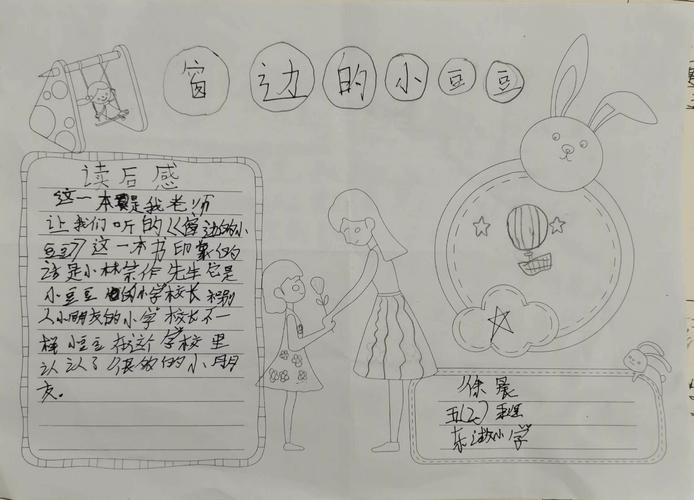 窗边的小豆豆
读后感
这一本是我老师
让我们听的《窗边的小
豆豆》这一本书印象的
该是小林宗作先生它是
小豆豆的小学校长和别
人小朋友的小学校长不一
样小豆豆在这个学校里
认认了很多的小朋
友。
徐晨
五(2)
东小学